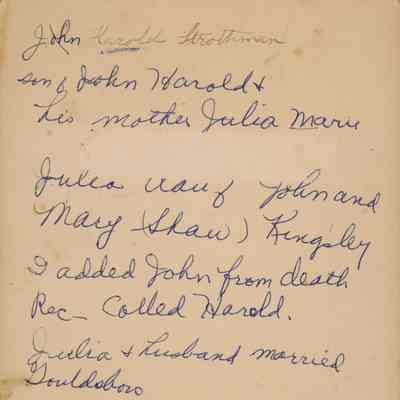 John Harold Strothman
son of John Harold +
his mother Julia Marie
Julia dau of John and
Mary (Shaw) Kingsley
I added John from death
Rec - Called Harold.
Julia + husband married
Gouldsboro